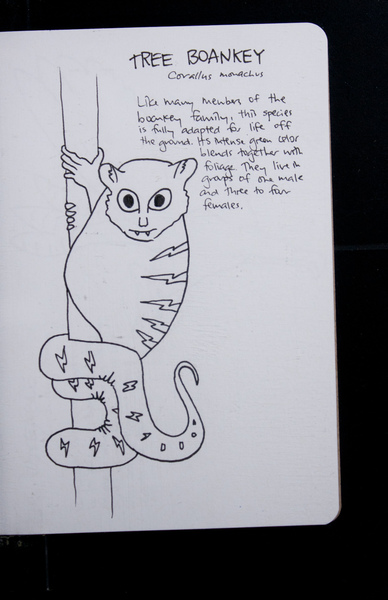 TREE BOANKEY
Corallus monachus
Like many members of the
boankey family, this species
is fully adapted for life off
the ground. Its intense green color
blends together with
foliage. They live in
groups of one male
and three to four
females.